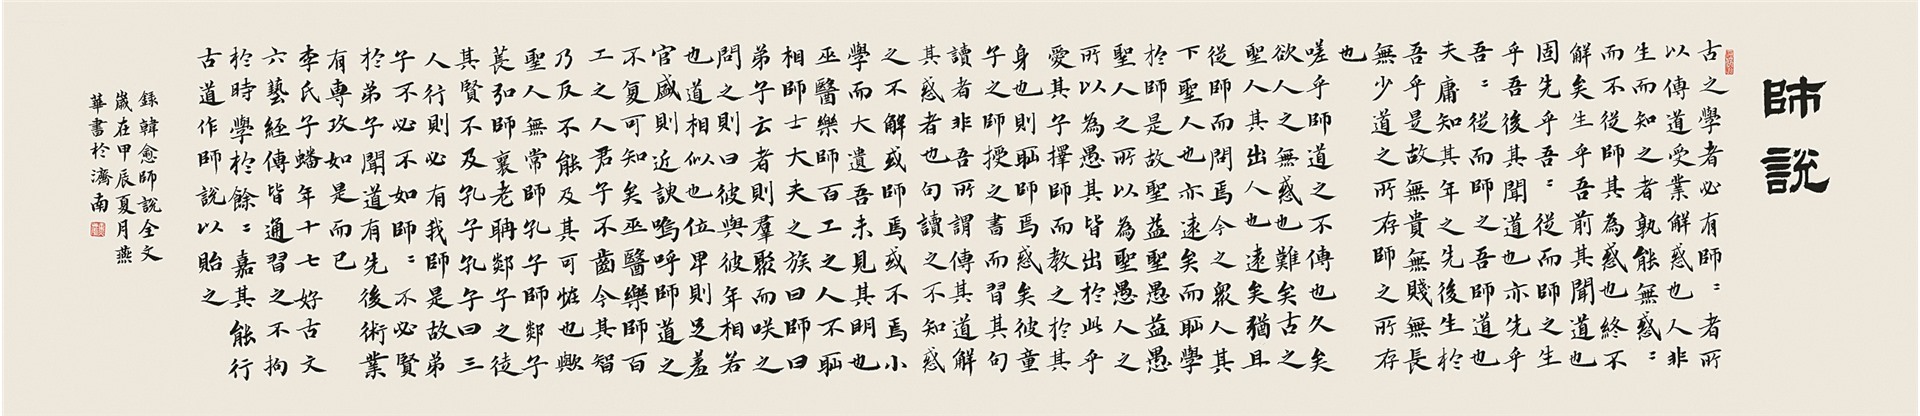 師說
古之學者必有師〻者所
以傳道受業解惑也人非
生而知之者孰能無惑〻
而不從師其為惑也終不
解矣生乎吾前其聞道也
固先乎吾〻從而師之生
乎吾後其聞道也亦先乎
吾〻從而師之吾師道也
夫庸知其年之先後生於
吾乎是故無貴無賤無長
無少道之所存師之所存
也
嗟乎師道之不傳也久矣
欲人之無惑也難矣古之
聖人其出人也遠矣猶且
從師而問焉今之眾人其
下聖人也亦遠矣而恥學
於師是故聖益聖愚益愚
聖人之所以為聖愚人之
所以為愚其皆出於此乎
愛其子擇師而教之於其
身也則恥師焉惑矣彼童
子之師授之書而習其句
讀者非吾所謂傳其道解
其惑者也句讀之不知惑
之不解或師焉或不焉小
學而大遺吾未見其明也
巫醫樂師百工之人不恥
相師士大夫之族曰師曰
弟子云者則羣聚而咲之
問之則曰彼與彼年相若
也道相似也位卑則足羞
官盛則近諛嗚呼師道之
不复可知矣巫醫樂師百
工之人君子不齒今其智
乃反不能及其可恠也歟
聖人無常師孔子師郯子
萇弘師襄老聃郯子之徒
其賢不及孔子孔子曰三
人行則必有我師是故弟
子不必不如師〻不必賢
於弟子聞道有先後術業
有專攻如是而已
李氏子蟠年十七好古文
六藝經傳皆通習之不拘
於時學於餘〻嘉其能行
古道作師說以貽之
錄韓愈師說全文
歲在甲辰夏月燕
華書於濟南